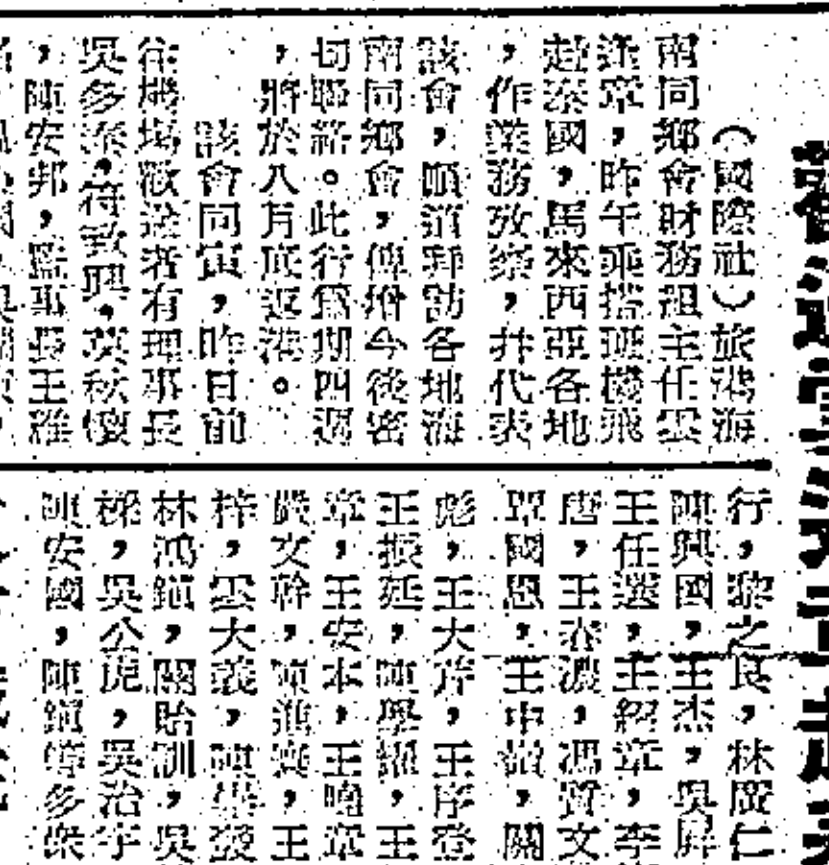 （國際社）旅港海
南同鄉會財務組主任雲
逢章，昨午乘搭班機飛
赴泰國，馬來西亞各地
，作業務攷察，幷代表
該會，順道拜訪各地海
南同鄉會，俾增今後密
切聯絡。此行爲期四週
，將於八月底返港。
該會同寅，昨日前
往機塲歡送者有理事長
吳多泰，符致興，莫秋懷
，陳安邦，監事長王雅
行，黎之良，林廣仁
陳興國，王杰，吳屏
王任選，王紹章，李
唐，王春濃，馮質文
覃國恩，王中嶺，關
彪，王大芹，王序登
王振延，陳學耀，王
章，王安本，王曉章
嚴文幹，陳進賓，王
梓，雲大義，陳華發
林鴻鎮，關貽訓，吳
樑，吳公虎，吳治宇
陳安國，陳鎮等多衆